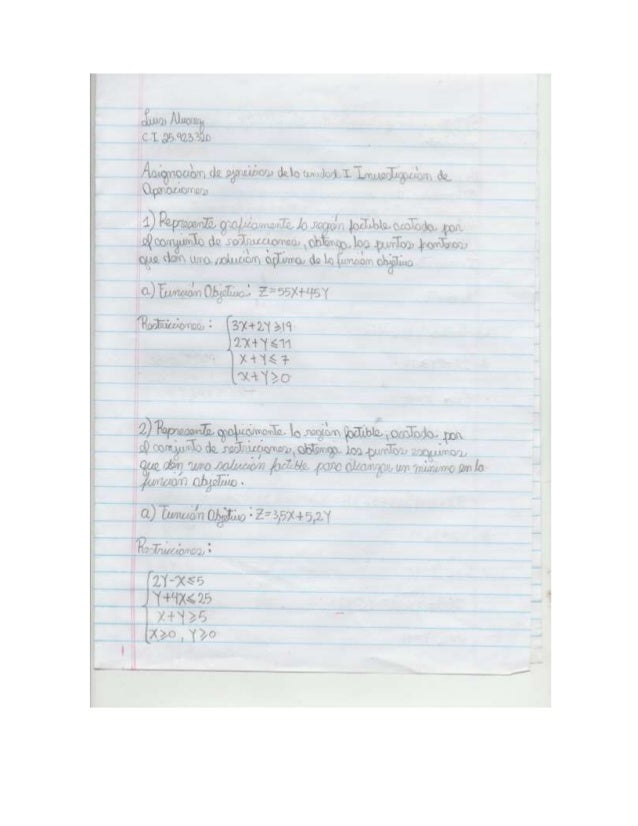 Luis Alvarez
C.I 25.923.320
Asignación de ejercicios de la unidad I Investigación de
Operaciones
1) Represente graficamente la región factible acotada por
el conjunto de restricciones, obtenga los puntos
que den una solución óptima de la función objetivo
a) Función Objetivo: Z=55X+45Y
Restricciones: 3X+2Y≥19
2X+Y≤11
X+Y≤7
X+Y≥0
2) Represente graficamente la región factible, acotada por
el conjunto de restricciones, obtenga los puntos esquinas
que den una solución factible para alcanzar un minimo en la
función objetivo.
a) Función Objetivo: Z=3,5X+5,2Y
Restricciones:
2Y-X≤5
Y+4X≤25
X+Y≥5
X≥0, Y≥0